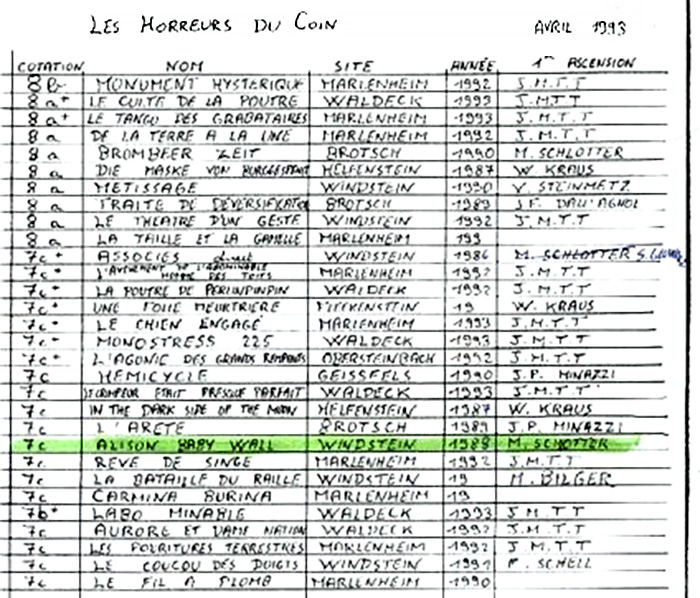 LES HORREURS DU COIN AVRIL 1993
COTATION NOM SITE ANNÉE 1re ASCENSION
8b MONUMENT HYSTERIQUE MARLENHEIM 1992 J.M.T.T
8a+ LE CULTE DE LA POUTRE WALDECK 1993 J.M.T.T
8a+ LE TANGO DES GRABATAIRES MARLENHEIM 1993 J.M.T.T
8a DE LA TERRE A LA UNE MARLENHEIM 1992 J.M.T.T
8a BROMBEER ZEIT BROTSCH 1990 M. SCHLOTTER
8a DIE MASKE VON HELFENSTEIN 1987 W. KRAUS
8a METISSAGE WINDSTEIN 1990 V. STEINMETZ
8a TRAITE DE DIVERSIFICATION BROTSCH 1989 J.F. DALL'AGNOL
8a LE THEATRE D'UN GESTE WINDSTEIN 1992 J.M.T.T
8a LA TAILLE ET LA GAMELLE MARLENHEIM 199
7c+ ASSOCIES WINDSTEIN 1986 M. SCHLOTTER
7c+ L'AVENEMENT DE L'ABOMINABLE HOMME DES MARLENHEIM 1992 J.M.T.T
7c+ LA POUTRE DE PERLINPINPIN WALDECK 1992 J.M.T.T
7c+ UNE FOLIE MEURTRIERE FLECKENSTEIN 19 W. KRAUS
7c+ LE CHIEN ENGAGÉ MARLENHEIM 1993 J.M.T.T
7c+ MONOSTRESS 225 WALDECK 1993 J.M.T.T
7c+ L'AGONIE DES GRANDS REMPARTS OBERSTEINBACH 1992 J.M.T.T
7c HEMICYCLE GEISSFELS 1990 J.P. MINAZZI
7c LE CRIMPEUR ETAIT PRESQUE PARFAIT WALDECK 1993 J.M.T.T
7c IN THE DARK SIDE OF THE MOON HELFENSTEIN 1987 W. KRAUS
7c L'ARETE BROTSCH 1989 J.P. MINAZZI
7c ALISON BABY WALL WINDSTEIN 1988 M. SCHOTTER
7c REVE DE SINGE MARLENHEIM 1992 J.M.T.T
7c LA BATAILLE DU RAILLE WINDSTEIN 19 M. BILGER
7c CARMINA BURINA MARLENHEIM 19
7b+ LABO MINABLE WALDECK 1993 J.M.TT
7c AURORE ET DAME NATION WALDECK 1992 J.M.T.T
7c LES POURITURES TERRESTRES MARLENHEIM 1992 J.M.T.T
7c LE COUCOU DES DOIGTS WINDSTEIN 1991 F. SCHELL
7c LE FIL A PLOMB MARLENHEIM 1990